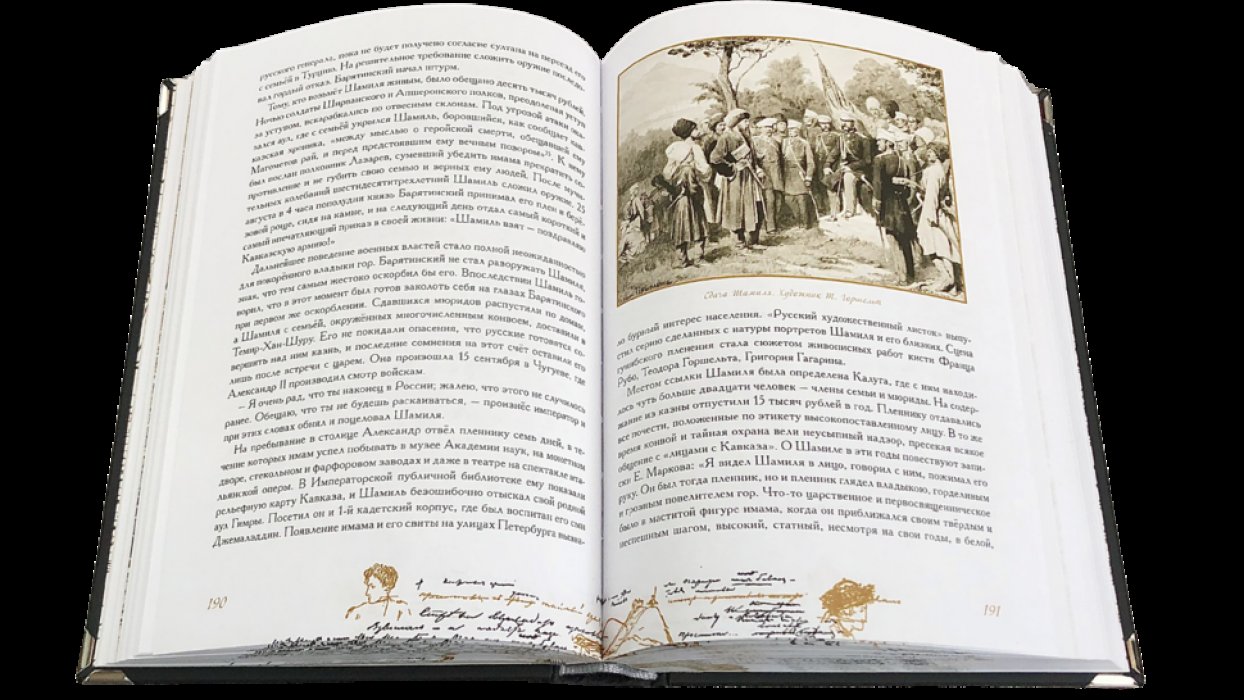 русского генерала, пока не будет получено согласие султана на переезд его
с семьёй в Турцию. На решительное требование сложить оружие последо-
вал гордый отказ. Барятинский начал штурм.
Тому, кто возьмёт Шамиля живым, было обещано десять тысяч рублей.
Ночью солдаты Ширванского и Апшеронского полков, преодолевая уступ
за уступом, вскарабкались по отвесным склонам. Под угрозой атаки ока-
зался аул, где с семьёй укрылся Шамиль, боровшийся, как сообщает кав-
казская хроника, «между мыслью о геройской смерти, обещавшей ему
Магометов рай, и перед предстоявшим ему вечным позором»⁷⁵. К нему
был послан полковник Лазарев, сумевший убедить имама прекратить со-
противление и не губить свою семью и верных ему людей. После мучи-
тельных колебаний шестидесятитрехлетний Шамиль сложил оружие. 25
августа в 4 часа пополудни князь Барятинский принимал его плен в берё-
зовой роще, сидя на камне, и на следующий день отдал самый короткий и
самый впечатляющий приказ в своей жизни: «Шамиль взят — поздравляю
Кавказскую армию!»
Дальнейшее поведение военных властей стало полной неожиданностью
для покорённого владыки гор. Барятинский не стал разоружать Шамиля,
зная, что тем самым жестоко оскорбил бы его. Впоследствии Шамиль го-
ворил, что в этот момент был готов заколоть себя на глазах Барятинского
при первом же оскорблении. Сдавшихся мюридов распустили по домам,
а Шамиля с семьёй, окружённых многочисленным конвоем, доставили в
Темир-Хан-Шуру. Его не покидали опасения, что русские готовятся со-
вершить над ним казнь, и последние сомнения на этот счёт оставили его
лишь после встречи с царем. Она произошла 15 сентября в Чугуеве, где
Александр II производил смотр войскам.
— Я очень рад, что ты наконец в России; жалею, что этого не случилось
ранее. Обещаю, что ты не будешь раскаиваться, — произнёс император и
при этих словах обнял и поцеловал Шамиля.
На пребывание в столице Александр отвёл пленнику семь дней, в те-
чение которых имам успел побывать в музее Академии наук, на монетном
дворе, стекольном и фарфоровом заводах и даже в театре на спектакле ита-
льянской оперы. В Императорской публичной библиотеке ему показали
рельефную карту Кавказа, и Шамиль безошибочно отыскал свой родной
аул Гимры. Посетил он и 1-й кадетский корпус, где был воспитан его сын
Джемалэддин. Появление имама и его свиты на улицах Петербурга вызва-
190
Сдача Шамиля. Художник Т. Горшельт
ло бурный интерес населения. «Русский художественный листок» выпу-
стил серию сделанных с натуры портретов Шамиля и его близких. Сцена
гунибского пленения стала сюжетом живописных работ кисти Франца
Рубо, Теодора Горшельта, Григория Гагарина.
Местом ссылки Шамиля была определена Калуга, где с ним находи-
лось чуть больше двадцати человек — члены семьи и мюриды. На содер-
жание из казны отпустили 15 тысяч рублей в год. Пленнику отдавались
все почести, положенные по этикету высокопоставленному лицу. В то же
время конной и тайная охрана вели неусыпный надзор, пресекая всякое
общение с «лицами с Кавказа». О Шамиле в эти годы повествуют запи-
ски Е. Маркова: «Я видел Шамиля в лицо, говорил с ним, пожимал его
руку. Он был тогда пленник, но и пленник глядел владыкою, горделивым
и грозным повелителем гор. Что-то царственное и первосвященническое
было в маститой фигуре имама, когда он приближался своим твёрдым и
неспешным шагом, высокий, статный, несмотря на свои годы, в белой,
191